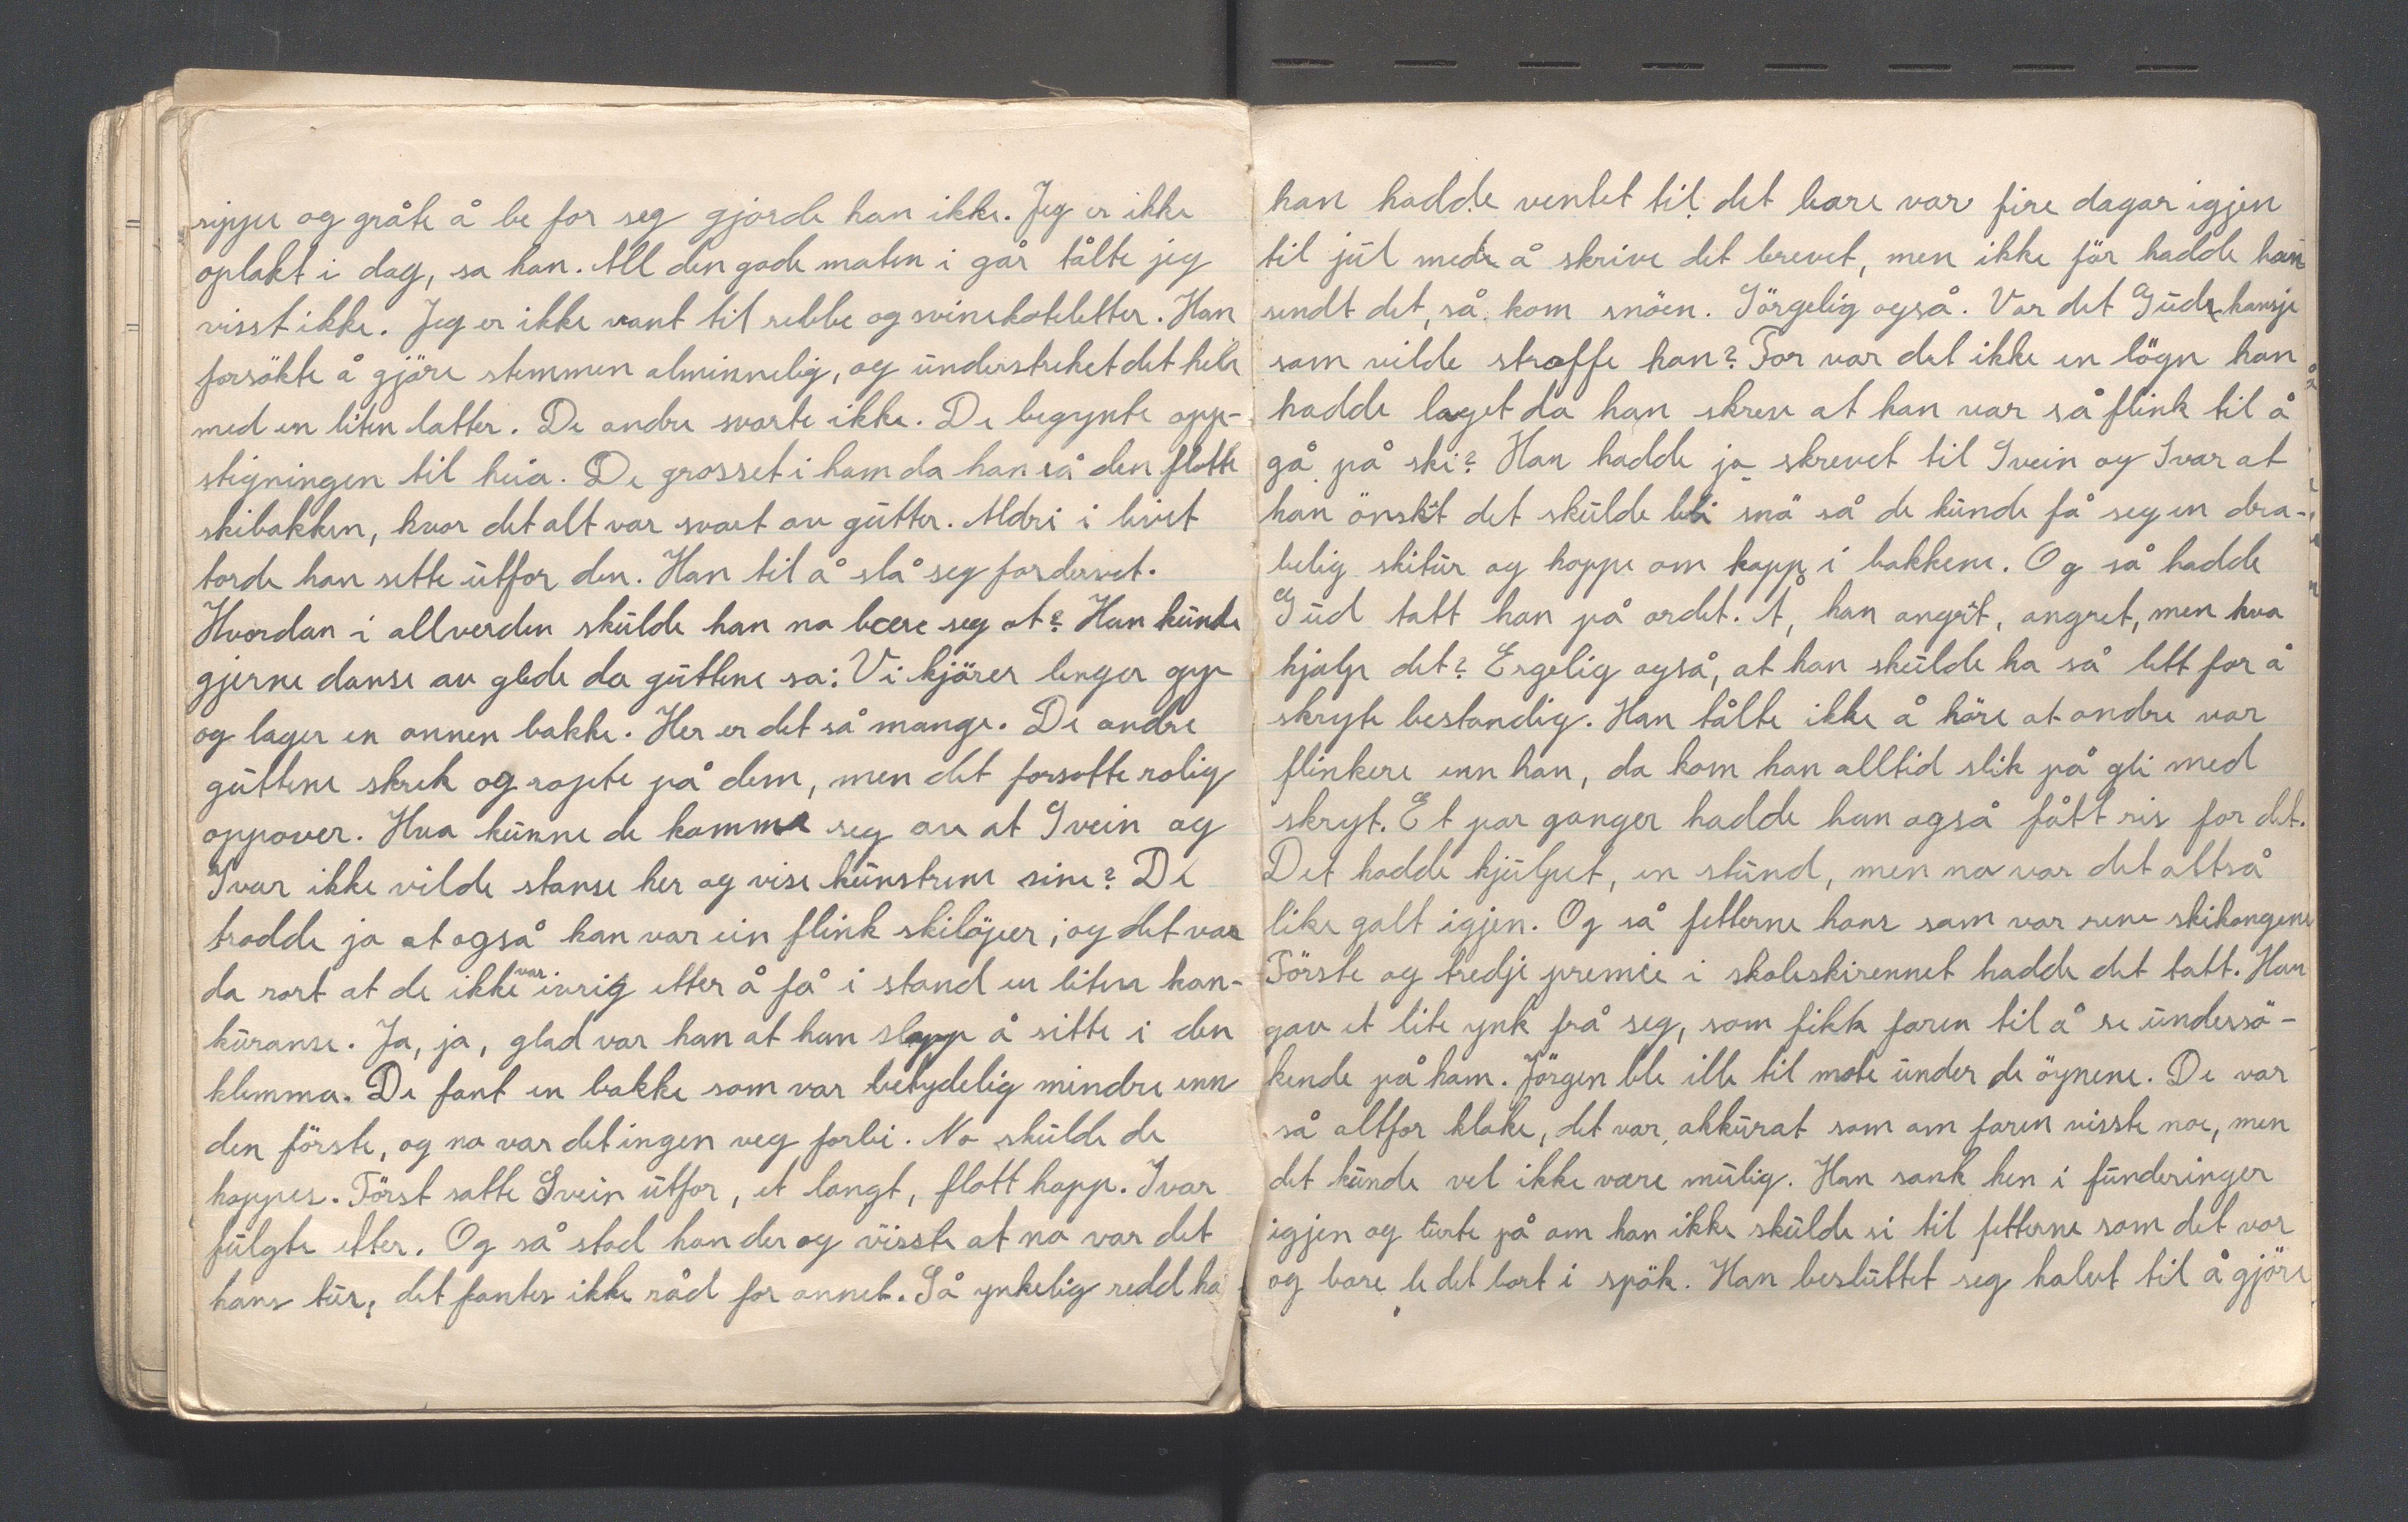 sippe og gråte å be for seg gjorde han ikke. Jeg er ikke
oplakt i dag, sa han. All den gode maten i går tålte jeg
visst ikke. Jeg er ikke vant til rebbe og svinekoteletter. Han
forsökte å gjöre stemmen alminnelig, og understreket det hele
med en liten latter. De andre svarte ikke. De begynte opp-
stigningen til heia. De grosset i ham da han så den flotte
skibakken, hvor det alt var svart av gutter. Aldri i livet
torde han sette utfor den. Han til å slå seg fordervet.
Hvordan i allverden skulde han no bære seg at? Han kunde
gjerne danse av glede da guttene sa: Vi kjörer lenger opp
og lager en annen bakke. Her er det så mange. De andre
guttene skrek og ropte på dem, men det forsatte rolig
oppover. Hva kunne de komme seg av at Svein og
Ivar ikke vilde stanse her og vise kunstrene sine? De
trodde jo at også han var ein flink skilöper, og det var
da rart at de ikke var ivrig etter å få i stand en liten kon-
kuranse. Ja, ja, glad var han at han slapp å sitte i den
klemma. De fant en bakke som var betydelig mindre enn
den förste, og no var det ingen veg forbi. No skulde de
hoppes. Först satte Svein utfor, et langt, flott hopp. Ivar
fulgte etter. Og så stod han der og visste at no var det
hans tur, det fantes ikke råd for annet. Så ynkelig redd ha
han hadde ventet til det bare var fire dagar igjen
til jul mede å skrive det brevet, men ikke för hadde han
sendt det, så kom snöen. Sörgelig også. Var det Gud kansje
som vilde straffe han? For var det ikke en lögn han
hadde laget da han skrev at han var så flink til å
gå på ski? Han hadde jo skrevet til Svein og Ivar at
han önsket det skulde bli snö så de kunde få seg en dra-
belig skitur og hoppe om kapp i bakkene. Og så hadde
Gud tatt han på ordet. Å, han angret, angret, men hva
hjalp det? Ergelig også, at han skulde ha så lett for å
skryte bestandig. Han tålte ikke å höre at andre var
flinkere enn han, da kom han alltid slik på gli med
skryt. Et par ganger hadde han også fått ris for det.
Det hadde hjulpet, en stund, men no var det altså
like galt igjen. Og så fetterne hans som var rene skikongene
Förste og tredje premie i skoleskirennet hadde det tatt. Han
gav et lite ynk frå seg, som fikk faren til å se undersö-
kende på ham. Jörgen ble ille til mote under de öynene. De var
så altfor kloke, det var akkurat som om faren visste noe, men
det kunde vel ikke være mulig. Han sank hen i funderinger
igjen og lurte på om han ikke skulde si til fetterne som det var
og bare le det bort i spök. Han besluttet seg halvt til å gjöre